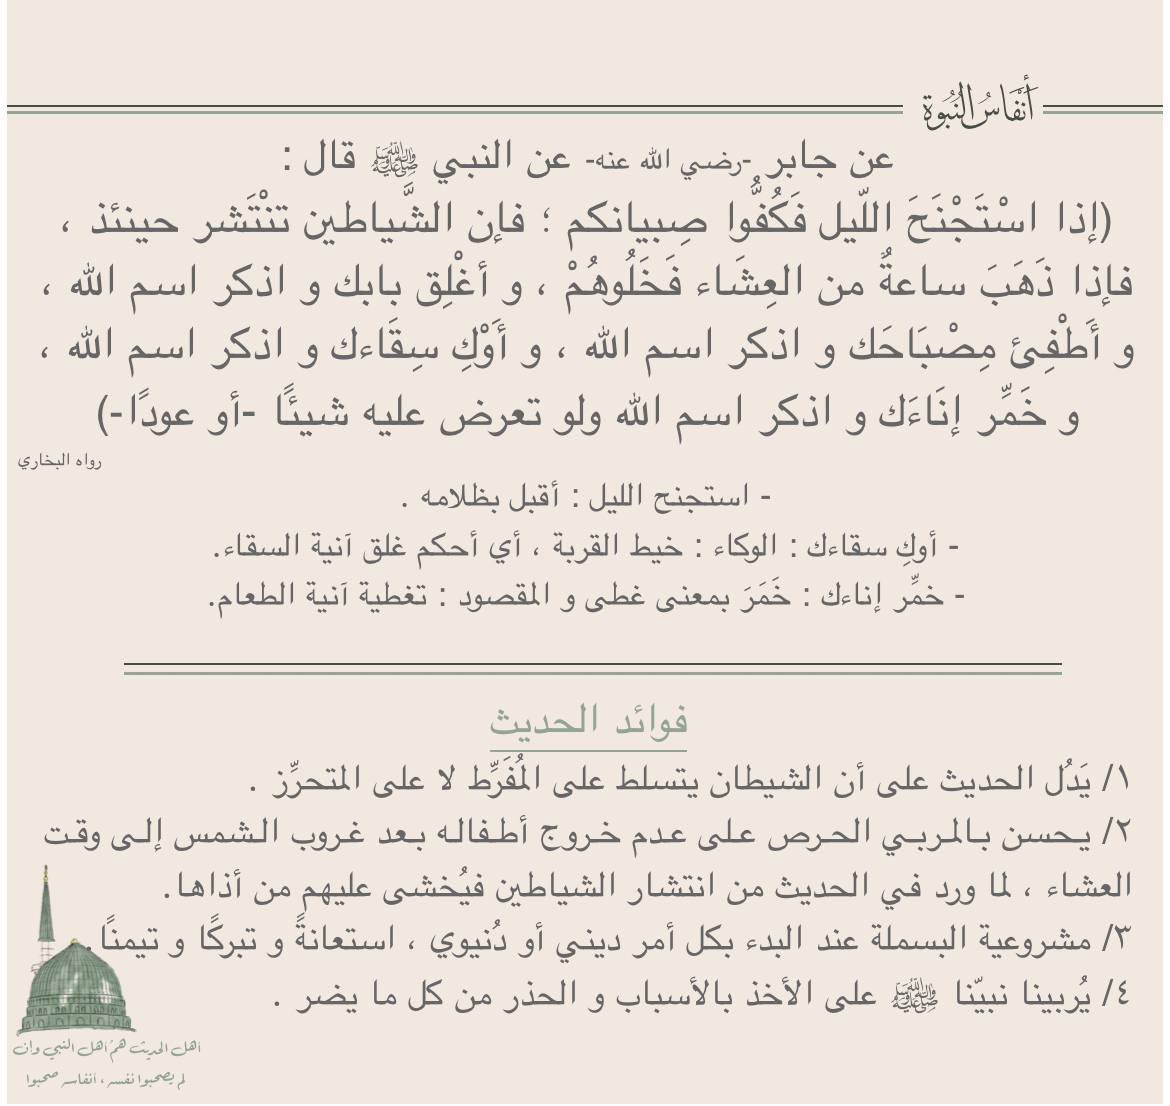 أَنْفَاسُ النُّبُوَّة
عن جابر -رضي الله عنه- عن النبي ﷺ قال :
(إذا اسْتَجْنَحَ اللّيل فَكُفُّوا صِبيانكم ؛ فإن الشَّياطين تنْتَشر حينئذ ،
فإذا ذَهَبَ ساعةٌ من العِشَاء فَخَلُوهُمْ ، و أغْلِق بابك و اذكر اسم الله ،
و أَطْفِئ مِصْبَاحَك و اذكر اسم الله ، و أَوْكِ سِقَاءك و اذكر اسم الله ،
و خَمِّر إنَاءَك و اذكر اسم الله ولو تعرض عليه شيئًا -أو عودًا-)
رواه البخاري
- استجنح الليل : أقبل بظلامه .
- أوكِ سقاءك : الوكاء : خيط القربة ، أي أحكم غلق آنية السقاء.
- خمِّر إناءك : خَمَرَ بمعنى غطى و المقصود : تغطية آنية الطعام.
فوائد الحديث
١/ يَدُل الحديث على أن الشيطان يتسلط على المُفَرِّط لا على المتحرِّز .
٢/ يحسن بالمربي الحرص على عدم خروج أطفاله بعد غروب الشمس إلى وقت
العشاء ، لما ورد في الحديث من انتشار الشياطين فيُخشى عليهم من أذاها.
٣/ مشروعية البسملة عند البدء بكل أمر ديني أو دُنيوي ، استعانةً و تبركًا و تيمنًا.
٤/ يُربينا نبيّنا ﷺ على الأخذ بالأسباب و الحذر من كل ما يضر .
أهل الحديث همُ أهل النبي وإن
لم يصحبوا نفسه ، أنفاسه صحبوا